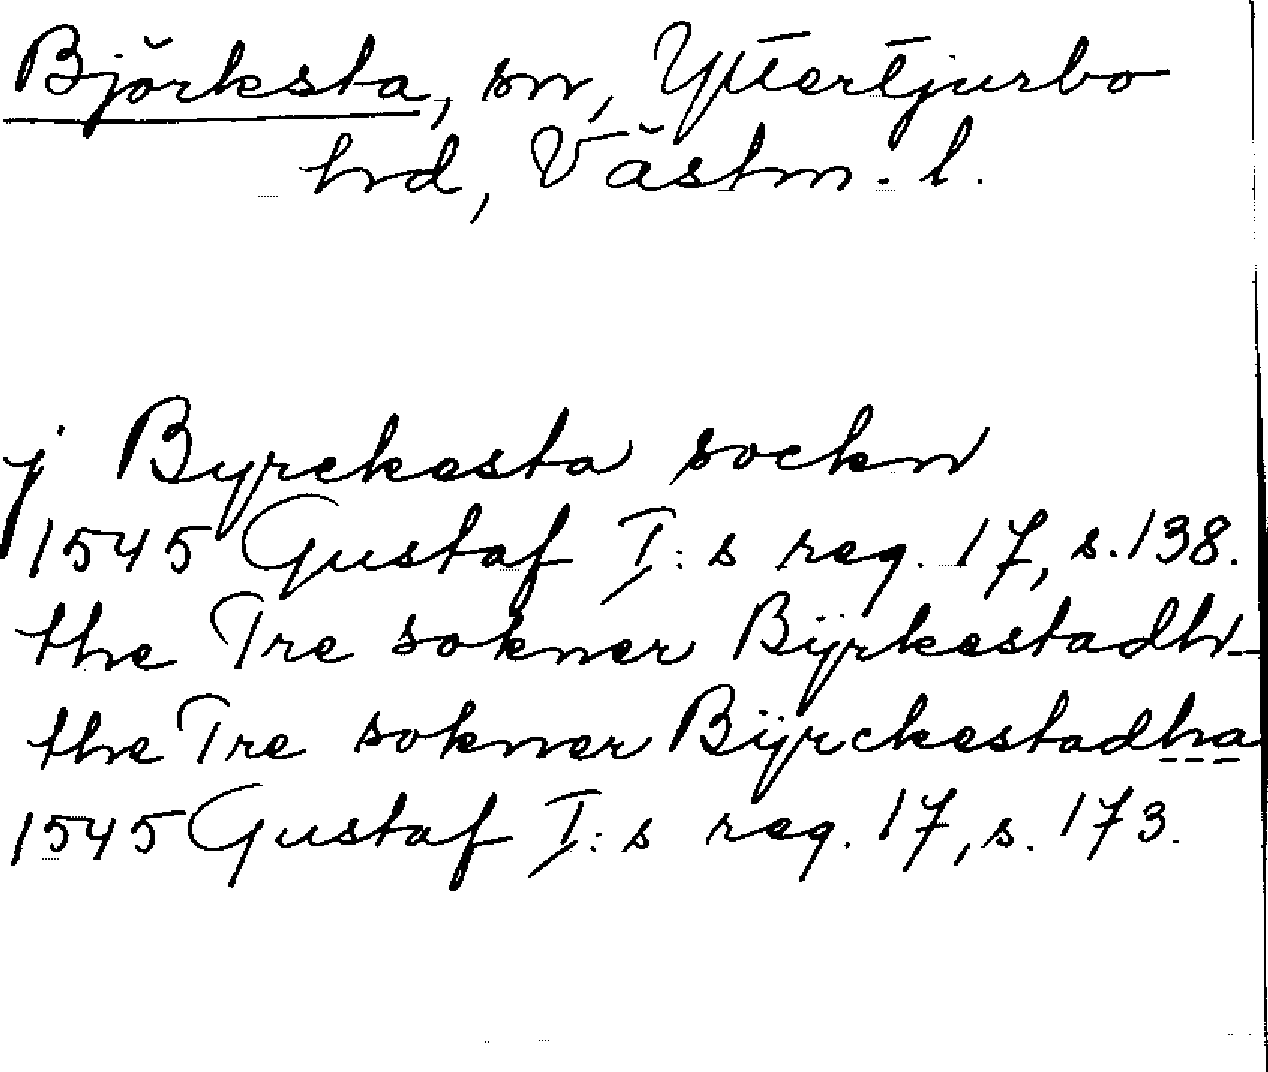 Björksta, sn, Yttertjurbo
hrd, Västm. l.
j Byrckesta sockn
1545 Gustaf I:s reg. 17, s. 138.
the Tre sokner Bÿrkestadh-
the Tre sokner Bÿrckestadha
1545 Gustaf I:s reg. 17, s. 173.